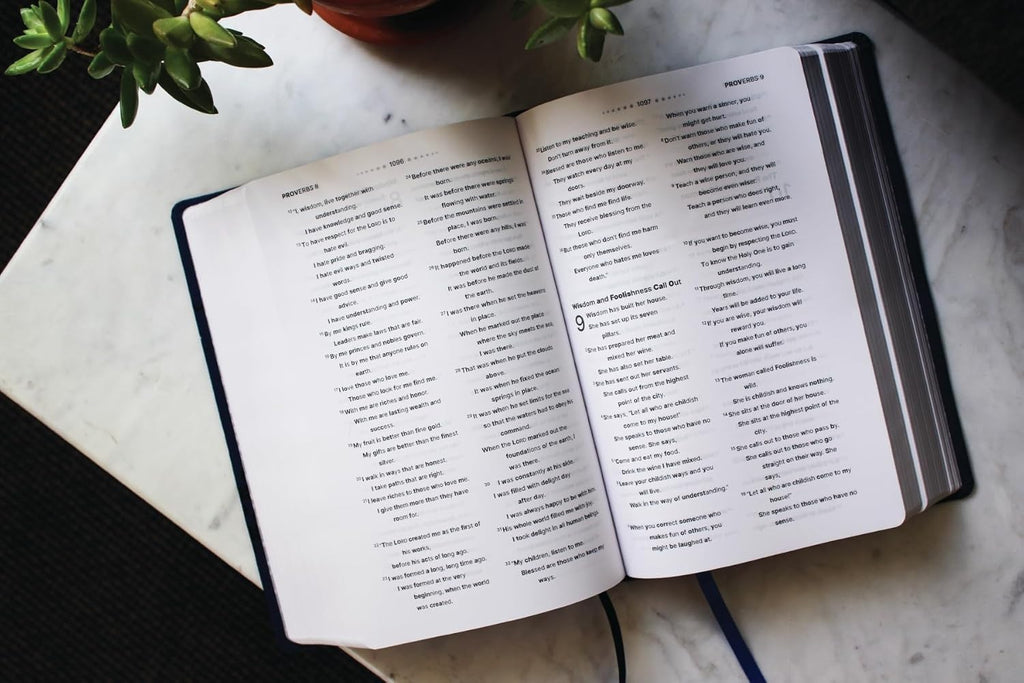 PROVERBS 8
1096
12 "I, wisdom, live together with
understanding.
I have knowledge and good sense.
13 To have respect for the LORD is to
hate evil.
I hate pride and bragging.
I hate evil ways and twisted
words.
14 I have good sense and give good
advice.
I have understanding and power.
15 By me kings rule.
Leaders make laws that are fair.
16 By me princes and nobles govern.
It is by me that anyone rules on
earth.
17 I love those who love me.
Those who look for me find me.
18 With me are riches and honor.
With me are lasting wealth and
success.
19 My fruit is better than fine gold.
My gifts are better than the finest
silver.
20 I walk in ways that are honest.
I take paths that are right.
21 I leave riches to those who love me.
I give them more than they have
room for.
22 "The LORD created me as the first of
his works,
before his acts of long ago.
23 I was formed a long, long time ago.
I was formed at the very
beginning, when the world
was created.
24 Before there were any oceans, I was
born.
It was before there were springs
flowing with water.
25 Before the mountains were settled in
place, I was born.
Before there were any hills, I was
born.
26 It happened before the LORD made
the world and its fields.
It was before he made the dust of
the earth.
27 I was there when he set the heavens
in place.
When he marked out the place
where the sky meets the sea,
I was there.
28 That was when he put the clouds
above.
It was when he fixed the ocean
springs in place.
29 It was when he set limits for the sea
so that the waters had to obey his
command.
When the LORD marked out the
foundations of the earth, I
was there.
30 I was constantly at his side.
I was filled with delight day
after day.
I was always happy to be with him.
31 His whole world filled me with joy.
I took delight in all human beings.
32 "My children, listen to me.
Blessed are those who keep my
ways.
1097
PROVERBS 9
33 Listen to my teaching and be wise.
Don't turn away from it.
34 Blessed are those who listen to me.
They watch every day at my
doors.
They wait beside my doorway.
35 Those who find me find life.
They receive blessing from the
LORD.
36 But those who don't find me harm
only themselves.
Everyone who hates me loves
death."
Wisdom and Foolishness Call Out
9 Wisdom has built her house.
She has set up its seven
pillars.
2 She has prepared her meat and
mixed her wine.
She has also set her table.
3 She has sent out her servants.
She calls out from the highest
point of the city.
4 She says, "Let all who are childish
come to my house!"
She speaks to those who have no
sense. She says,
5 "Come and eat my food.
Drink the wine I have mixed.
6 Leave your childish ways and you
will live.
Walk in the way of understanding."
7 "When you correct someone who
makes fun of others, you
might be laughed at.
When you warn a sinner, you
might get hurt.
8 Don't warn those who make fun of
others, or they will hate you.
Warn those who are wise, and
they will love you.
9 Teach a wise person, and they will
become even wiser.
Teach a person who does right,
and they will learn even more.
10 If you want to become wise, you must
begin by respecting the LORD.
To know the Holy One is to gain
understanding.
11 Through wisdom, you will live a long
time.
Years will be added to your life.
12 If you are wise, your wisdom will
reward you.
If you make fun of others, you
alone will suffer.
13 The woman called Foolishness is
wild.
She is childish and knows nothing.
14 She sits at the door of her house.
She sits at the highest point of the
city.
15 She calls out to those who pass by.
She calls out to those who go
straight on their way. She
says,
16 "Let all who are childish come to my
house!"
She speaks to those who have no
sense.